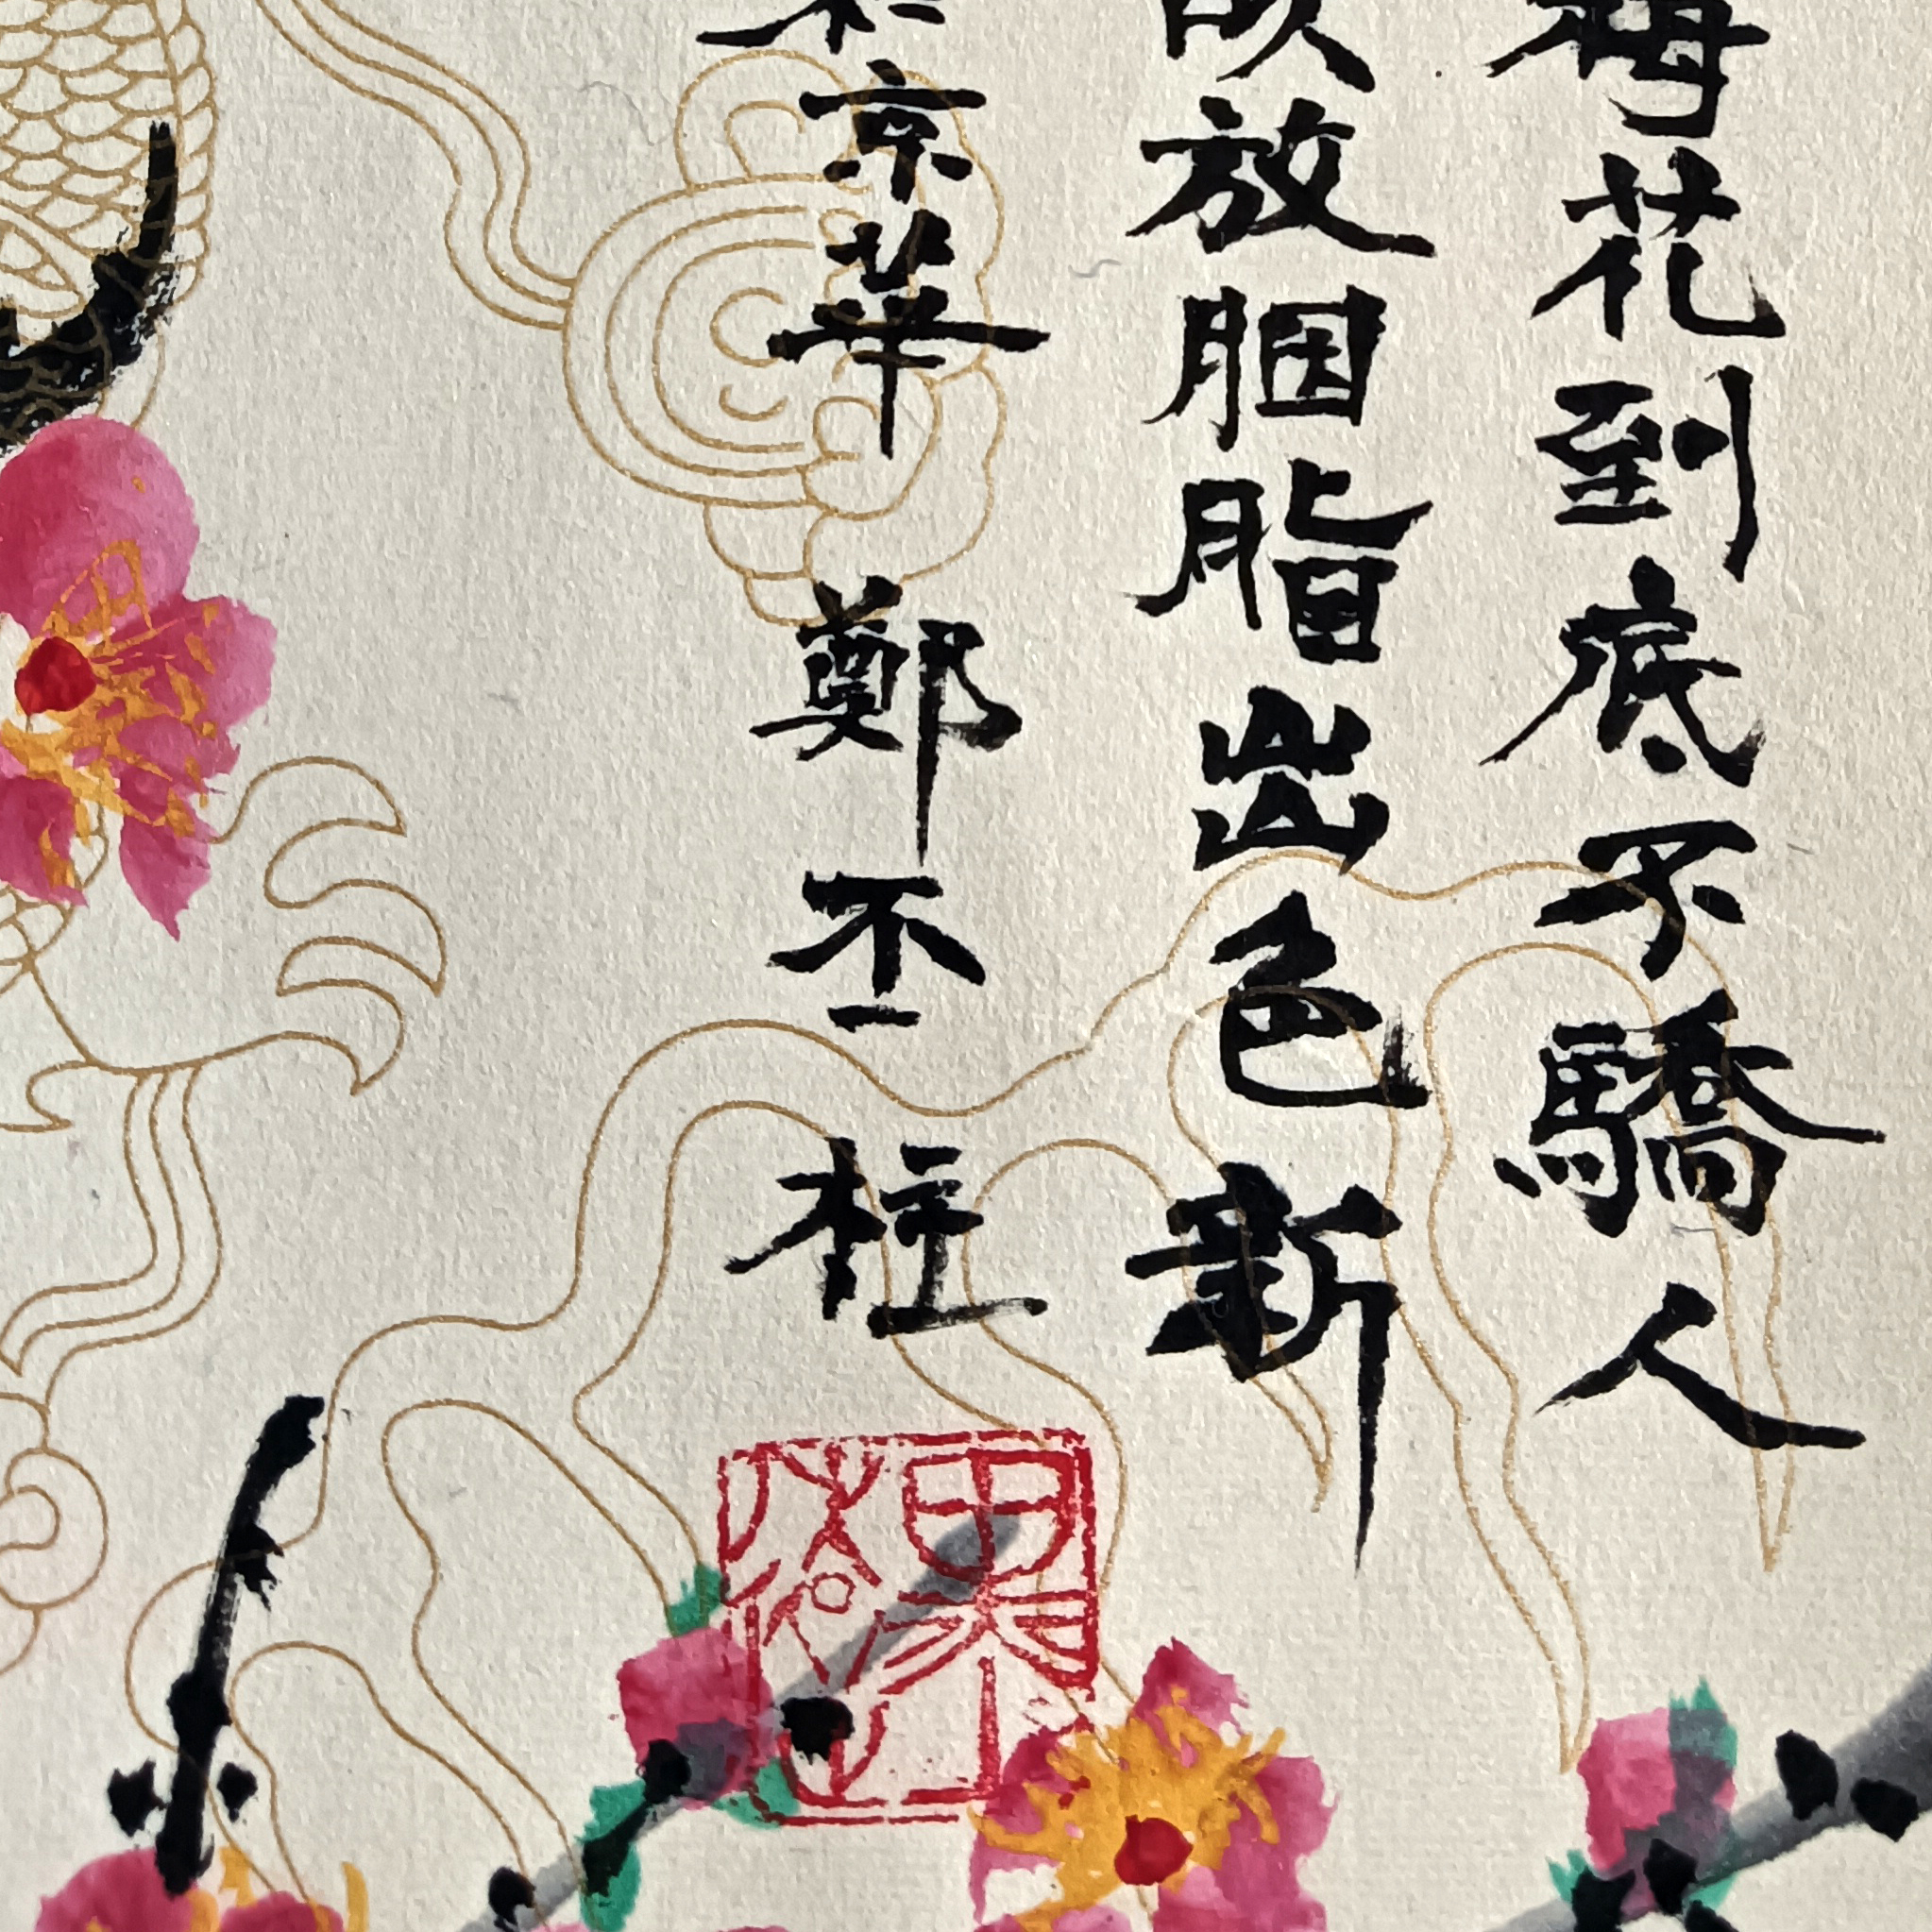 梅花到底不驕人
放胭脂出色新
京華 鄭丕柱